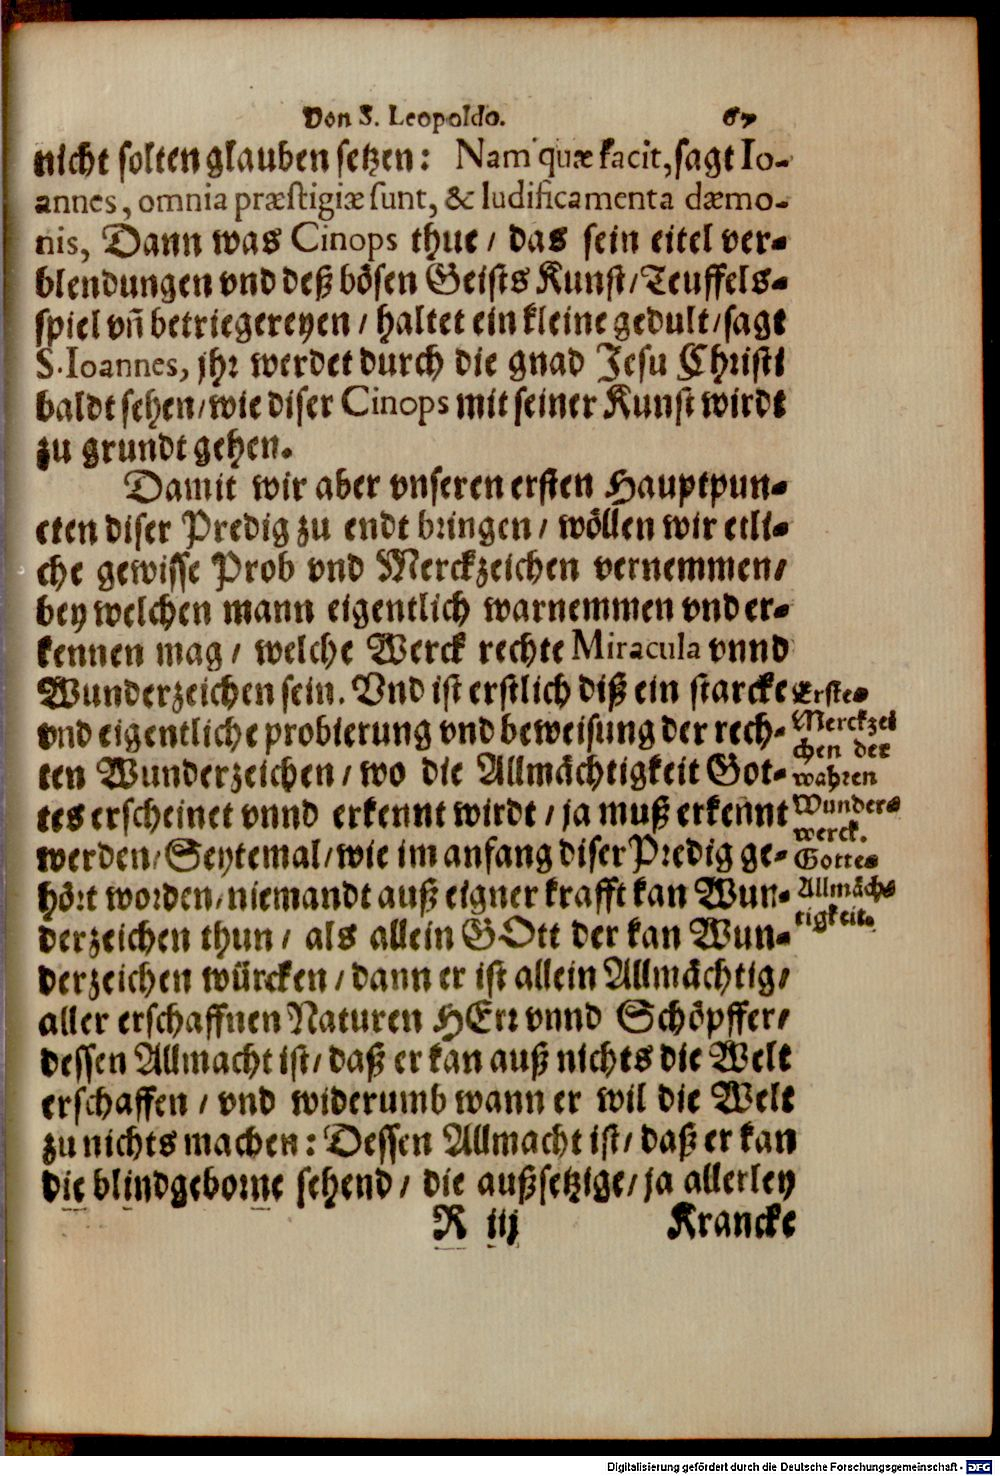 Von S. Leopoldo. 67
nicht solten glauben setzen: Nam quæ facit, sagt Io-
annes, omnia præstigiæ sunt, & ludificamenta dæmo-
nis, Dann was Cinops thue / das sein eitel ver-
blendungen vnd deß bösen Geists Kunst / Teuffels-
spiel vñ betriegereyen / haltet ein kleine gedult / sagt
S. Ioannes, jhr werdet durch die gnad Jesu Christi
baldt sehen / wie diser Cinops mit seiner Kunst wirdt
zu grundt gehen.
Damit wir aber vnseren ersten Hauptpun-
cten diser Predig zu endt bringen / wöllen wir etli-
che gewisse Prob vnd Merckzeichen vernemmen /
bey welchen mann eigentlich warnemmen vnd er-
kennen mag / welche Werck rechte Miracula vnnd
Wunderzeichen sein. Vnd ist erstlich diß ein starcke
vnd eigentliche probierung vnd beweisung der rech-
ten Wunderzeichen / wo die Allmächtigkeit Got-
tes erscheinet vnnd erkennt wirdt / ja muß erkennt
werden / Seytemal / wie im anfang diser Predig ge-
hört worden / niemandt auß eigner krafft kan Wun-
derzeichen thun / als allein GOtt der kan Wun-
derzeichen würcken / dann er ist allein Allmächtig /
aller erschaffnen Naturen HErr vnnd Schöpffer /
dessen Allmacht ist / daß er kan auß nichts die Welt
erschaffen / vnd widerumb wann er wil die Welt
zu nichts machen: Dessen Allmacht ist / daß er kan
die blindgeborne sehend / die außsetzige / ja allerley
R iij Krancke
Erstes
Merckzei
chen der
wahren
Wunder-
werck.
Gottes
Allmäch-
tigkeit.
Digitalisierung gefördert durch die Deutsche Forschungsgemeinschaft - DFG